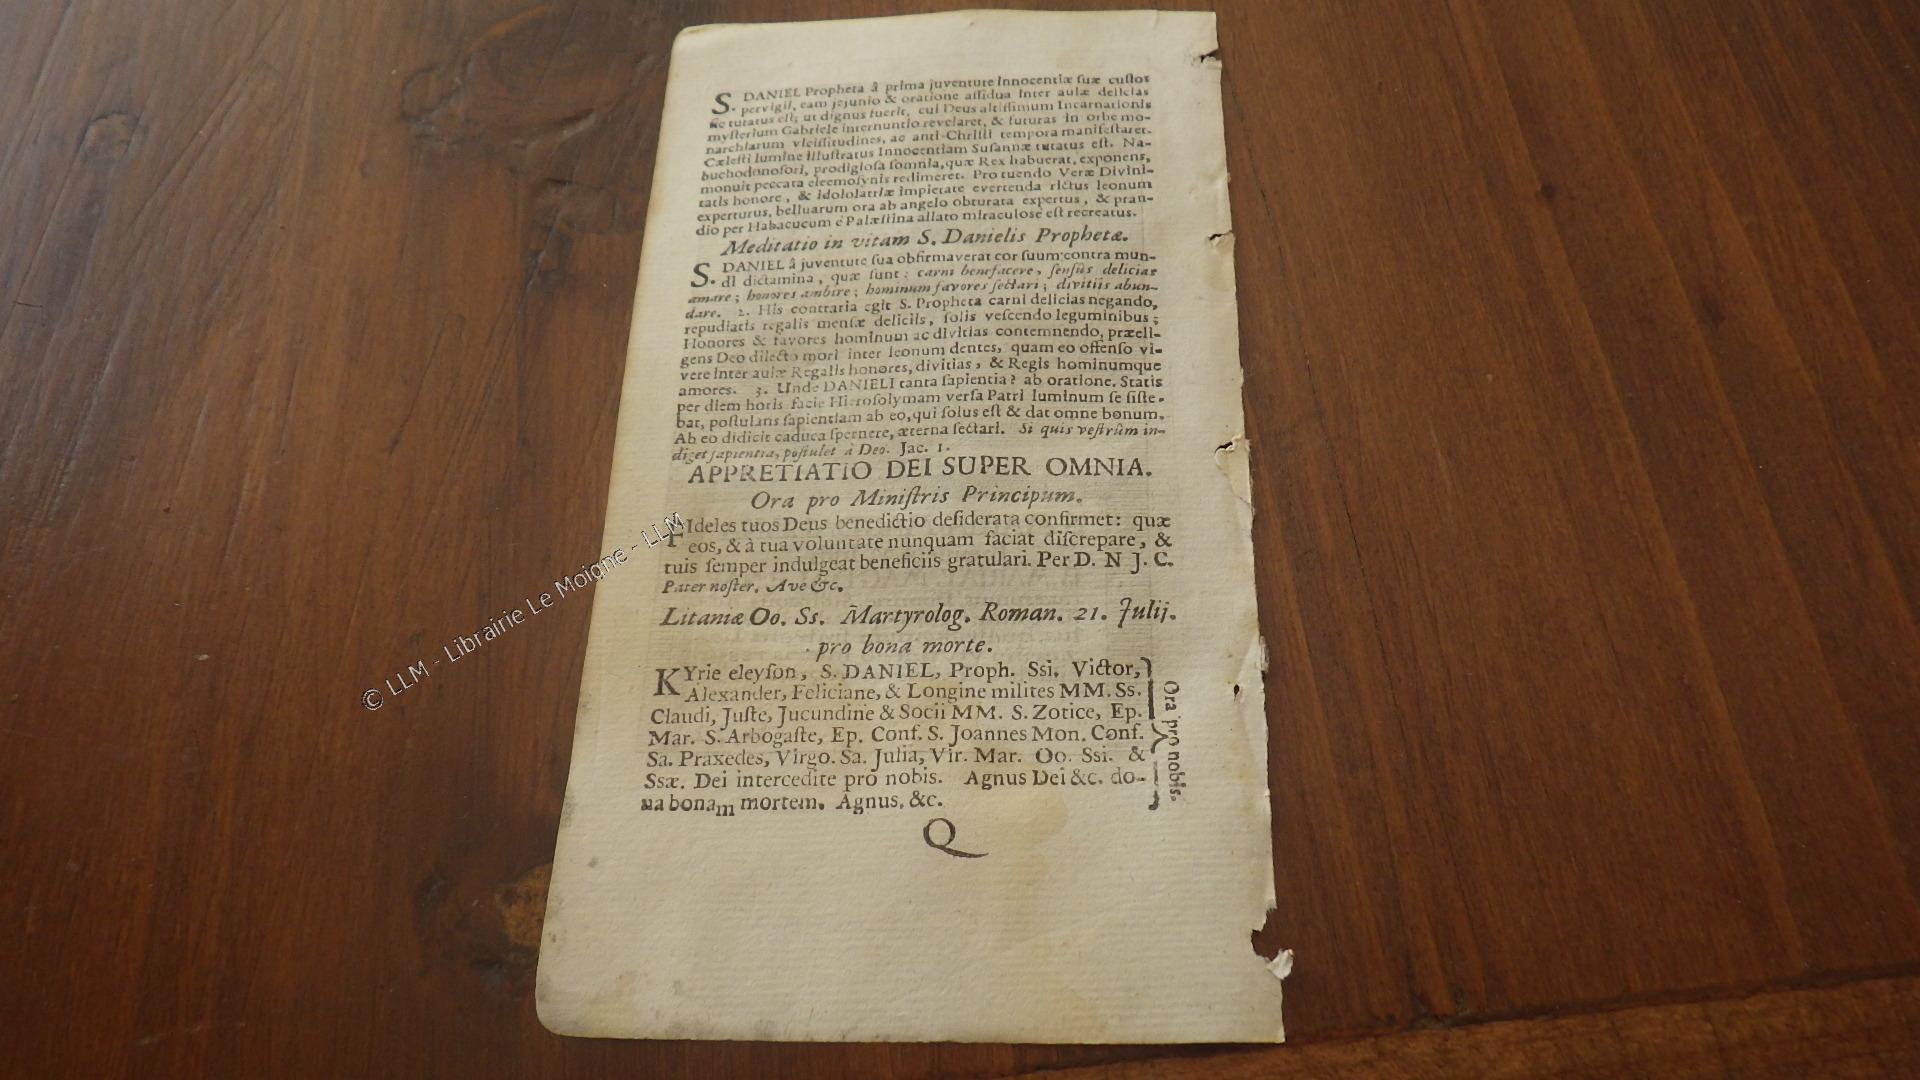 S. DANIEL Propheta â prima juventute Innocentiæ ſuæ cuſtos
pervigil, eam jejunio & oratione aſſidua inter aulæ delicias
ſic tutatus eſt; ut dignus fuerit, cui Deus altiſſimum Incarnationis
myſterium Gabriele internuntio revelaret, & futuras in orbe mo-
narchiarum viciſſitudines, ac anti-Chriſti tempora manifeſtaret.
Cæleſti lumine illuſtratus Innocentiam Suſannæ tutatus eſt. Na-
buchodonoſori, prodigioſa ſomnia, quæ Rex habuerat, exponens,
monuit peccata eleemoſynis redimeret. Pro tuendo Veræ Divini-
tatis honore, & idololatriæ impietate evertenda rictus leonum
experturus, belluarum ora ab angelo obturata expertus, & pran-
dio per Habacucum è Palæſtina allato miraculose eſt recreatus.
Meditatio in vitam S. Danielis Prophetæ.
S. DANIEL â juventute ſua obfirmaverat cor ſuum contra mun-
di dictamina, quæ ſunt: carni benefacere, ſenſûs delicias
amare; honores ambire; hominum favores ſectari; divitiis abun-
dare. 2. His contraria egit S. Propheta carni delicias negando,
repudiatis regalis menſæ deliciis, ſolis veſcendo leguminibus;
Honores & favores hominum ac divitias contemnendo, præeli-
gens Deo dilecto mori inter leonum dentes, quam eo offenſo vi-
vere inter aulæ Regalis honores, divitias, & Regis hominumque
amores. 3. Unde DANIELI tanta ſapientia? ab oratione. Statis
per diem horis facie Hieroſolymam verſa Patri luminum ſe ſiſte-
bat, poſtulans ſapientiam ab eo, qui ſolus eſt & dat omne bonum.
Ab eo didicit caduca ſpernere, æterna ſectari. Si quis veſtrûm in-
diget ſapientia, poſtulet à Deo. Jac. 1.
APPRETIATIO DEI SUPER OMNIA.
Ora pro Miniſtris Principum.
FIdeles tuos Deus benedictio deſiderata confirmet: quæ
eos, & à tua voluntate nunquam faciat diſcrepare, &
tuis ſemper indulgeat beneficiis gratulari. Per D. N J. C.
Pater noſter. Ave &c.
Litaniæ Oo. Ss. Martyrolog. Roman. 21. Julij.
pro bona morte.
KYrie eleyſon, S. DANIEL, Proph. Ssi. Victor,
Alexander, Feliciane, & Longine milites MM. Ss.
Claudi, Juſte, Jucundine & Socii MM. S. Zotice, Ep.
Mar. S. Arbogaſte, Ep. Conf. S. Joannes Mon. Conf.
Sa. Praxedes, Virgo. Sa. Julia, Vir. Mar. Oo. Ssi. &
Ssæ. Dei intercedite pro nobis. Agnus Dei &c. do-
na bonam mortem. Agnus, &c.
Ora pro nobis.
Q
© LLM - Librairie Le Moigne - LLM